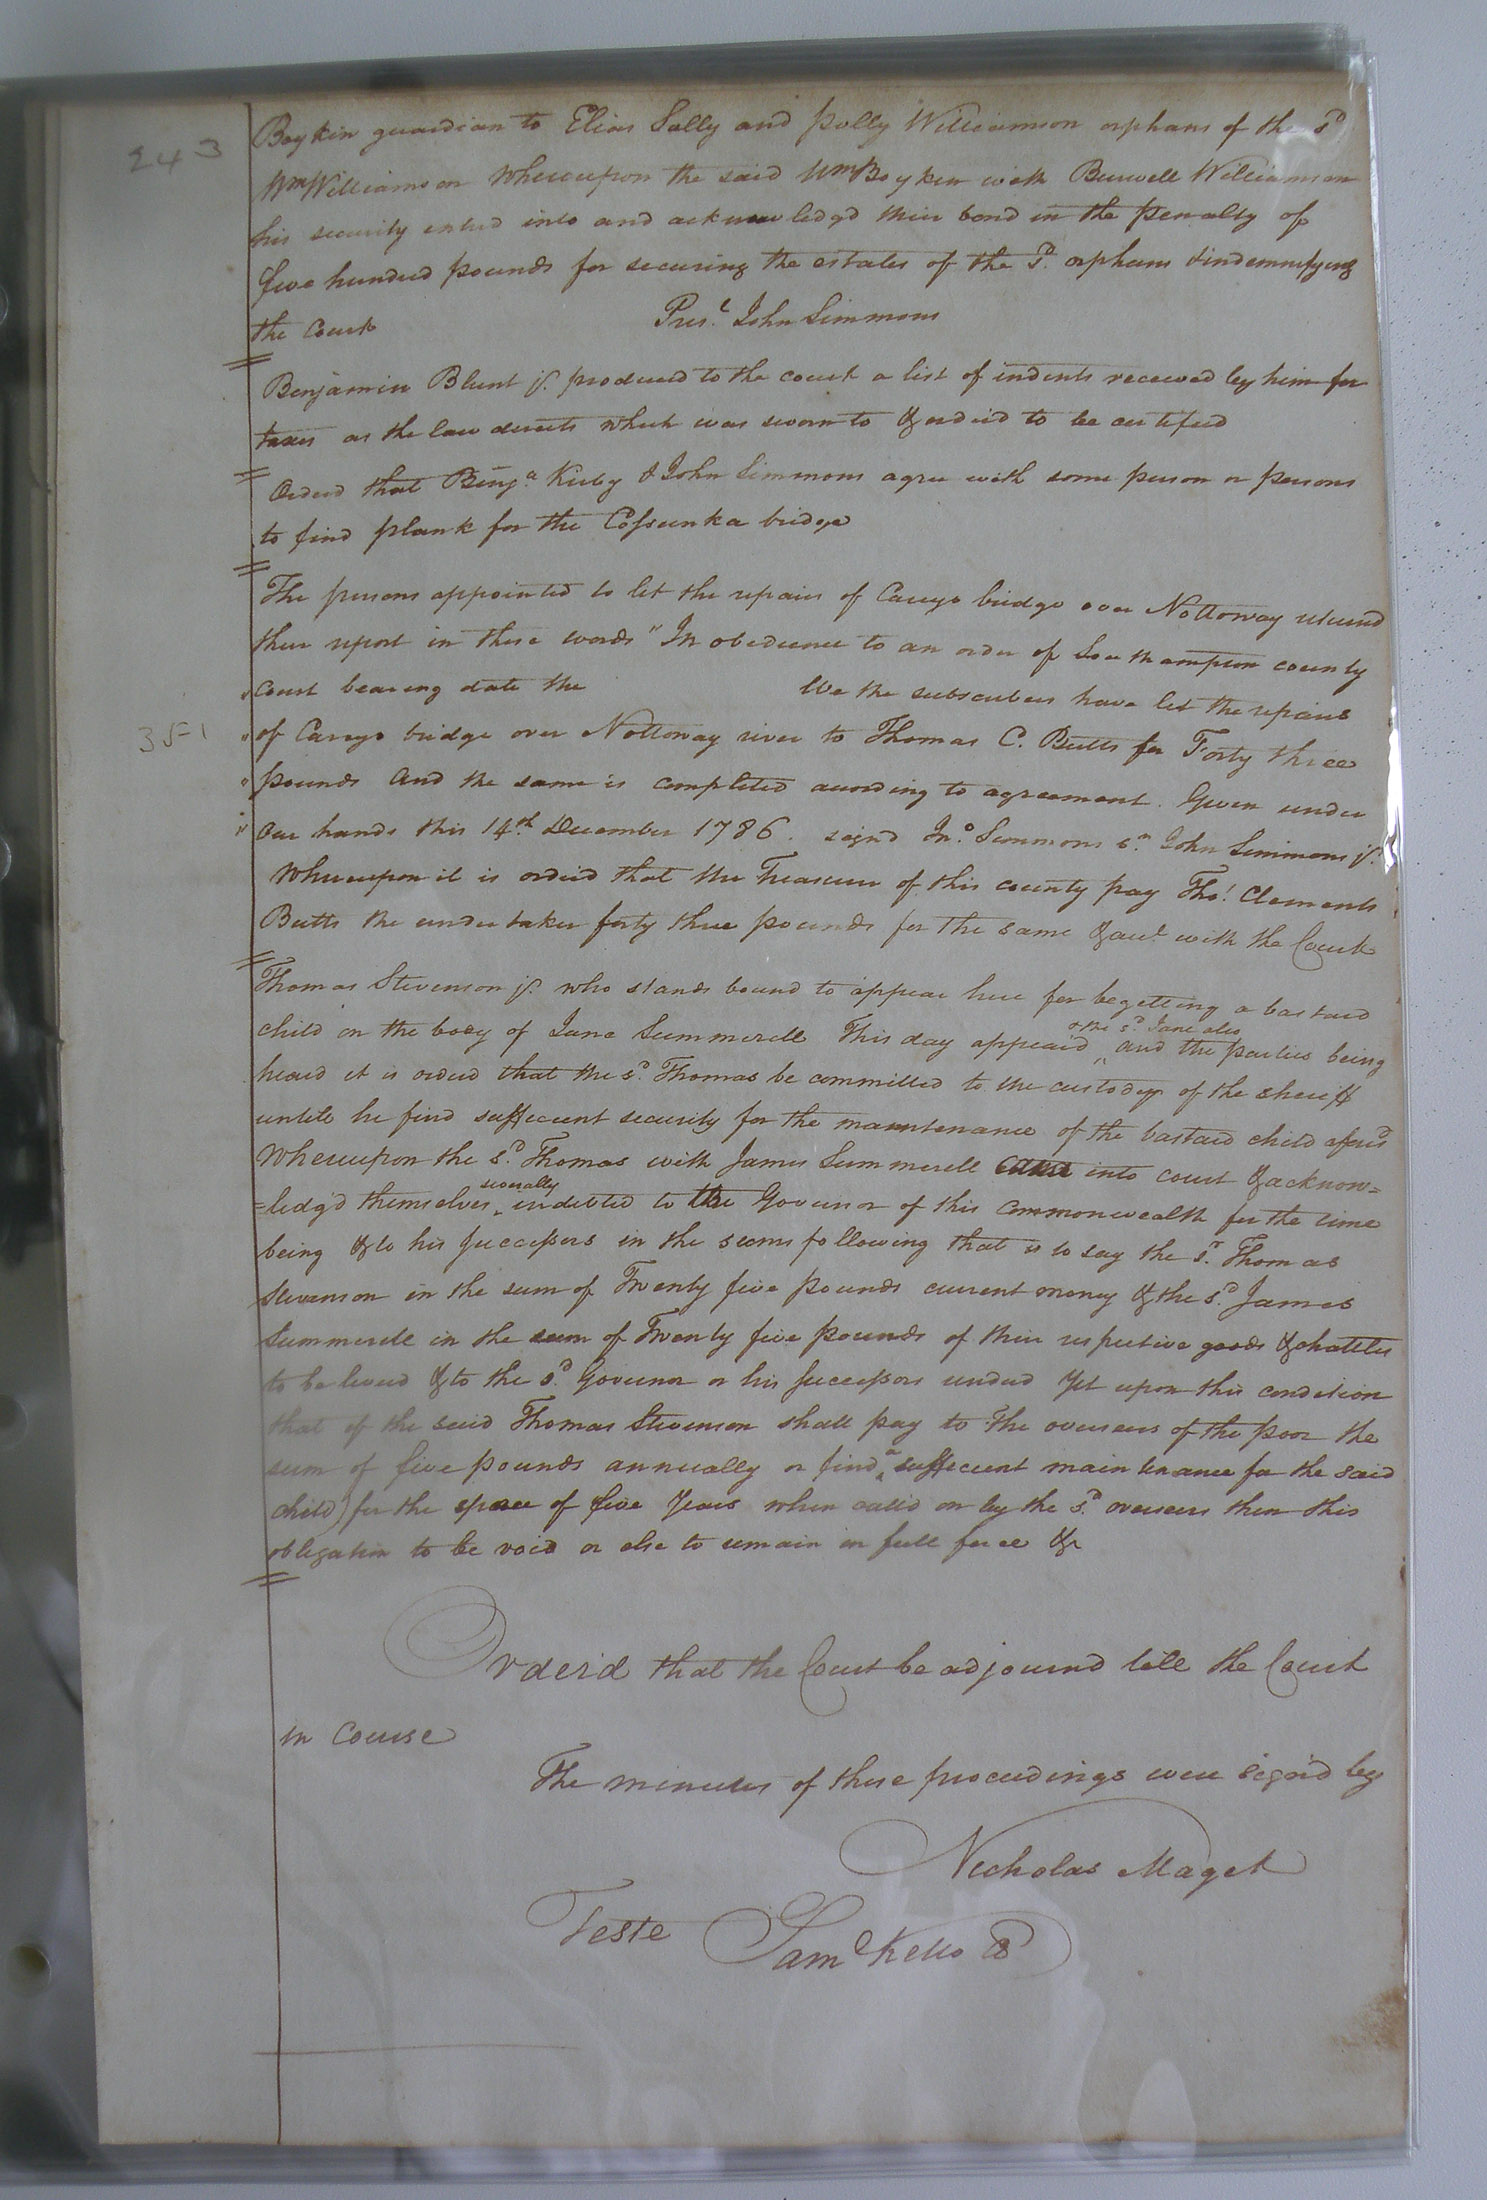 243
Boykin guardian to Elias Sally and polly Williamson orphans of the sd
Wm Williamson Whereupon the said Wm Boykin with Burwell Williamson
his security enterd into and acknowledgd their bond in the penalty of
five hundred pounds for securing the estates of the sd. orphans & indemnifying
the Court Prest. John Simmons
Benjamin Blunt jr. produced to the court a list of indents received by him for
taxes as the law directs which was sworn to & orderd to be certified
Orderd that Benja. Kirby & John Simmons agree with some person or persons
to find plank for the Cossunka bridge
The persons appointed to let the repairs of Careys bridge over Nottoway returnd
their report in these words "In obedience to an order of Southampton county
" Court bearing date the We the subscribers have let the repairs
" of Careys bridge over Nottoway river to Thomas C. Butts for Forty three
" pounds and the same is completed according to agreement. Given under
" our hands this 14th December 1786. signd Jno. Simmons sr. John Simmons jr.
Whereupon it is orderd that the Treasurer of this county pay Tho! Clements
Butts the undertaker forty three pounds for the same & with the Court
351
Thomas Stevenson jr. who stands bound to appear here for begetting a bastard
child on the body of Jane Summerell This day appeard & the sd Jane also and the parties being
heard it is orderd that the sd. Thomas be committed to the custody of the sheriff
untill he find suffecient security for the maintenance of the bastard child aforesd
Whereupon the sd. Thomas with James Summerell came into court & acknow=
=ledg'd themselves severally indebted to the Governor of this commonwealth for the time
being & to his successors in the sums following that is to say the sd. Thomas
Stevenson in the sum of Twenty five pounds current money & the sd. James
Summerell in the sum of Twenty five pounds of their respective goods & chattles
to be levied & to the sd. Governor or his successors renderd Yet upon this condition
that if the said Thomas Stevenson shall pay to the overseers of the poor the
sum of five pounds annually or find a suffecient maintenance for the said
child) for the space of five Years when calld on by the sd. overseers then this
obligation to be void or else to remain in full force &c
Order'd that the Court be adjournd till the Court
in course
The minutes of these proceedings were sign'd by
Nicholas Maget
Teste Saml Kello